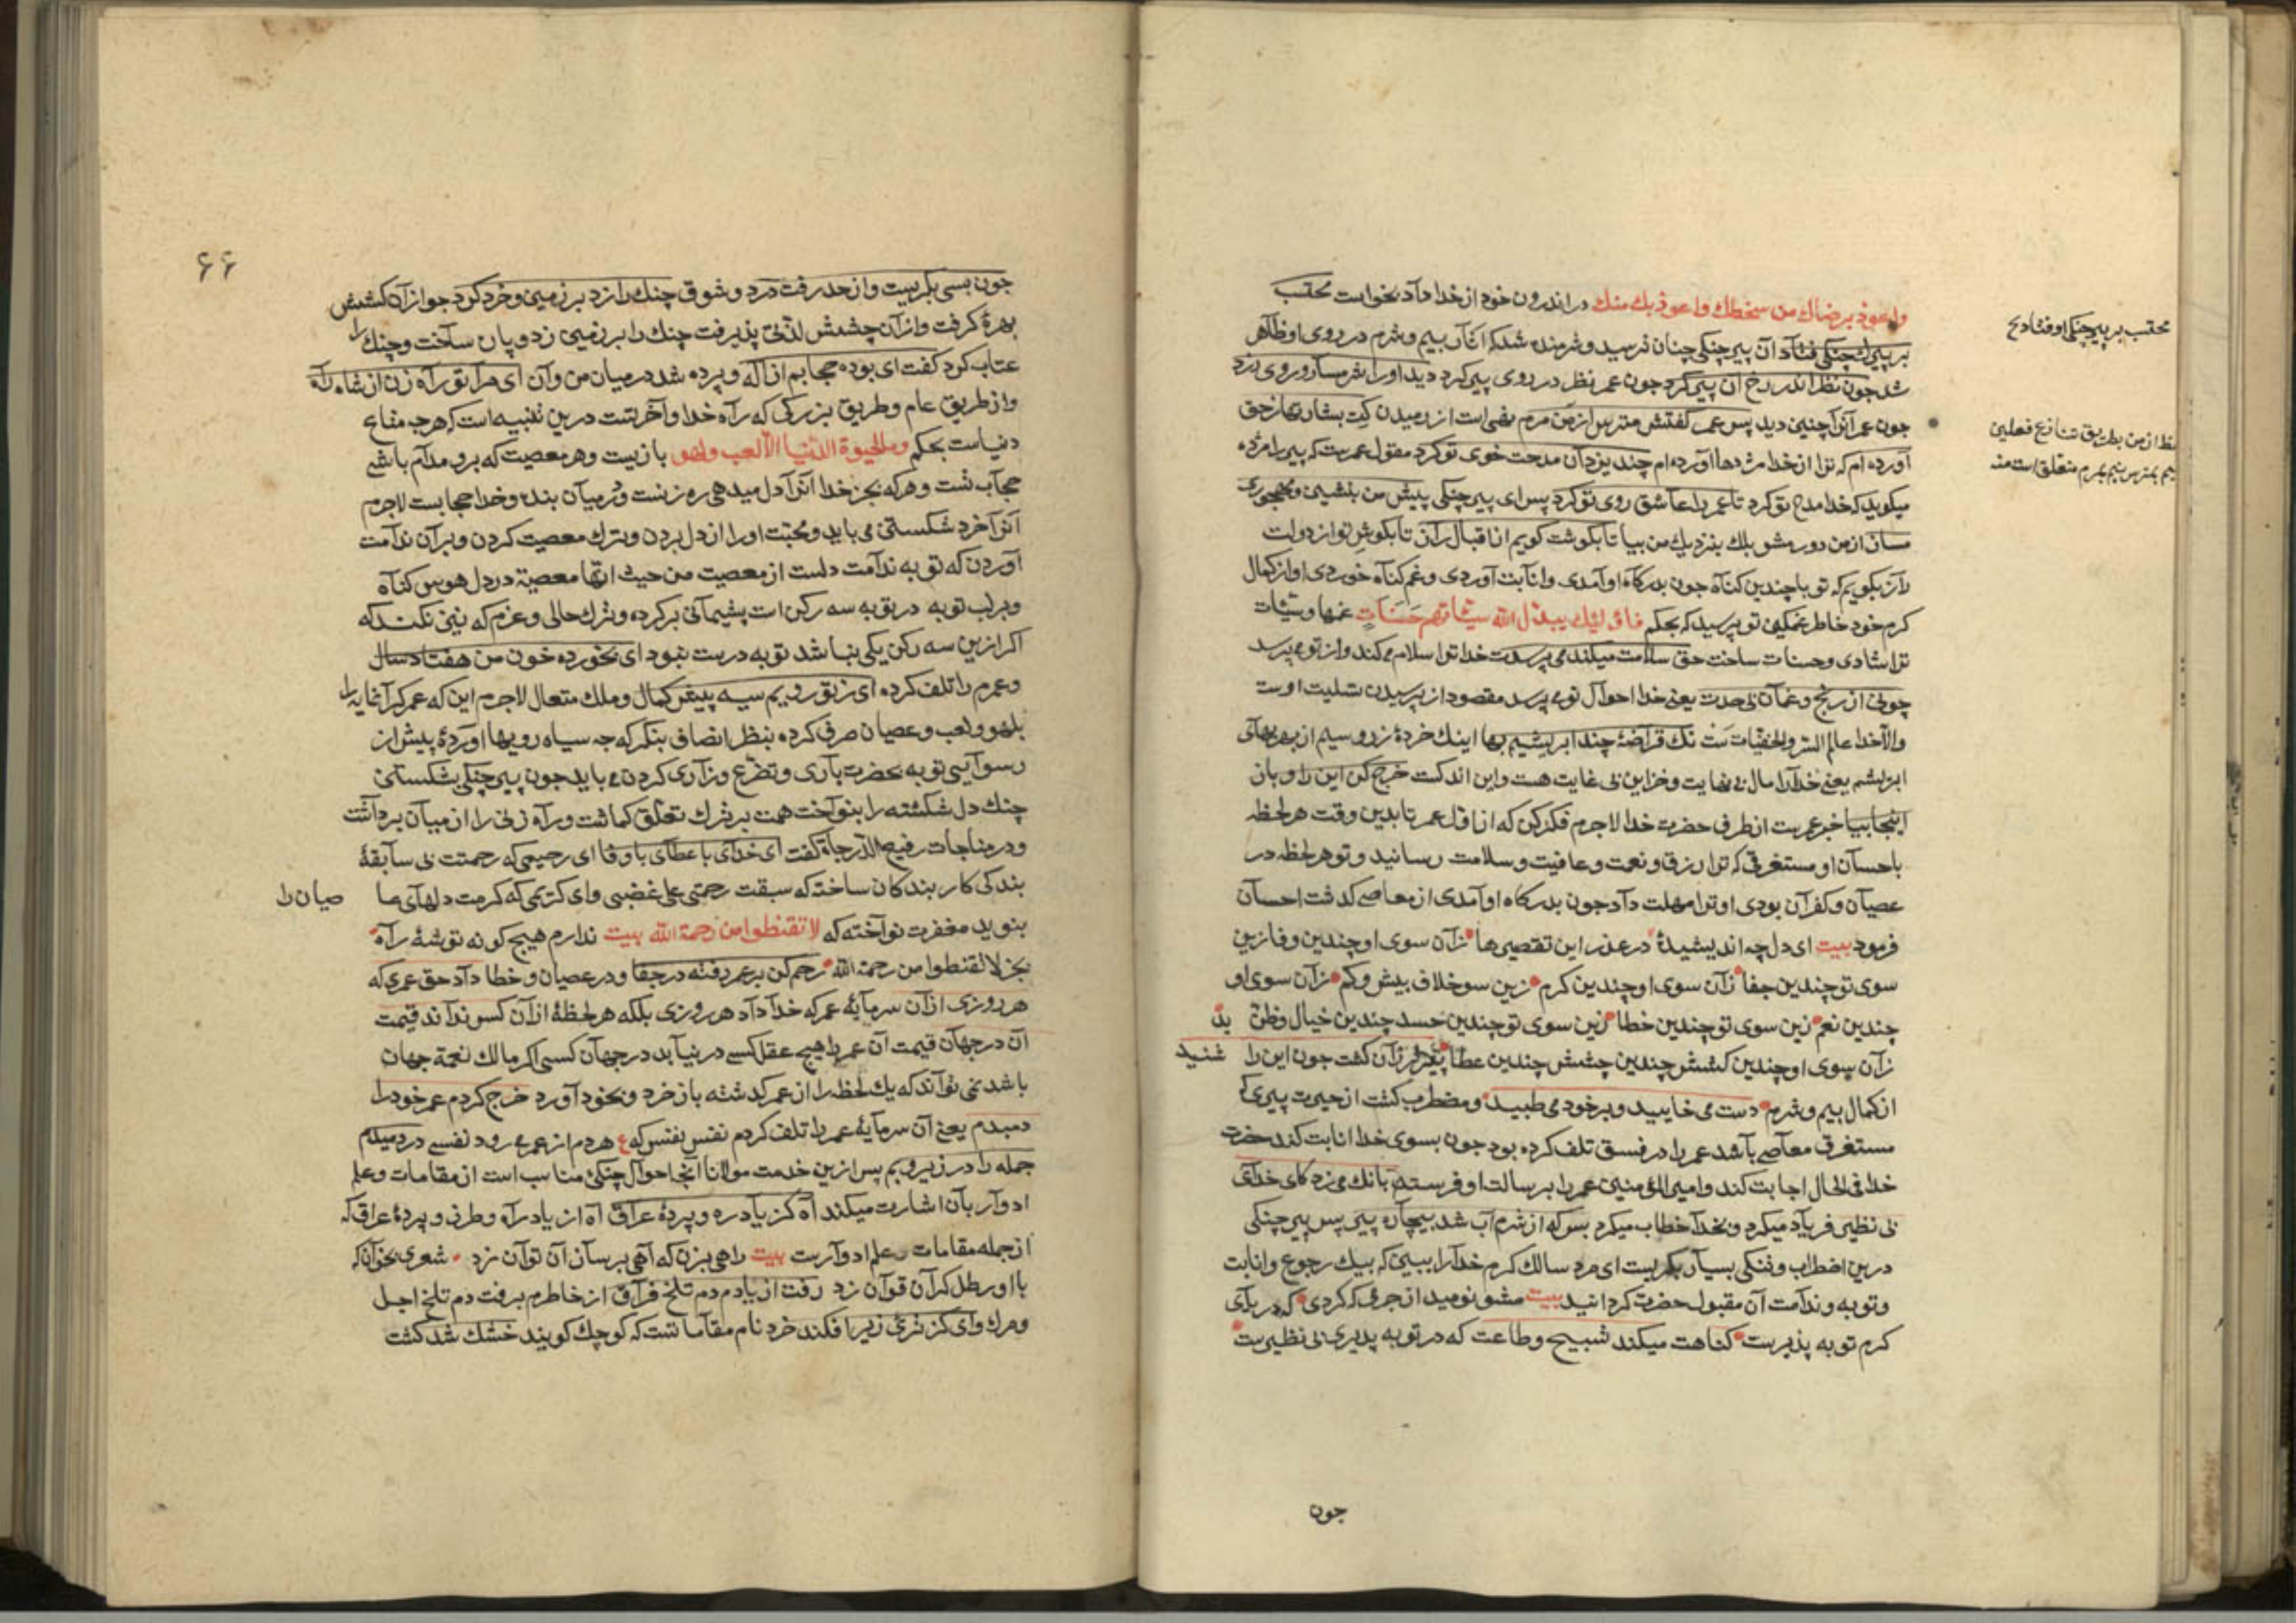 واعوذ برضاك من سخطك واعوذ بك منك در اندرون خود از خدا داد بخواست محتسب
بر پیرك چنکی فتاد آن پیر چنکی چنان ترسید وشرمنده شد که آثار بیم وشرم در روی او ظاهر
شد جون نظر اندر رخ آن پیر کرد جون عمر نظر در روی پیر کرد دید اورا شرمسار وروی زرد
جون عمر آنرا چنین دید پس عمر کفتش مترس از من مرم نهی است از رمیدن کت بشارتها زحق
آورده ام که ترا از خدا مژدها آورده ام چند یزدان مدحت خوی تو کرد مقول عمرست که پیر را مژده
میکوید که خدا مدح تو کرد تا عمر را عاشق روی تو کرد پس ای پیر چنکی پیش من بنشین ومهجوری
مساز از من دور مشو بلك بنزدیك من بیا تا بکوشت کویم از اقبال راز تا بکوش تو از دولت
راز بکویم که تو با چندین کناه جون بدرکاه او آمدی وانابت آوردی وغم کناه خوردی او از کمال
کرم خود خاطر غمکین تو پرسید که بحکم فاولئك یبدل الله سیئاتهم حسنات غمها وسیئات
ترا شادی وحسنات ساخت حق سلامت میکند می پرسدت خدا ترا سلام میکند واز تو می پرسد
چونی از رنج وغمان بی حدت یعنی خدا احوال تو می پرسد مقصود از پرسیدن تسلیت اوست
والا خدا عالم السر والخفیات ست نك قراضهٔ چند ابریشیم بها اینك خردهٔ زر وسیم از بهر بهای
ابریشم یعنی خدارا مال بی نهایت وخزاین بی غایت هست واین اندکست خرج کن این را وباز
اینجا بیا خبر عمرست از طرف حضرت خدا لاجرم فکر کن که از اول عمر تا بدین وقت هر لحظه
باحسان او مستغرقی که ترا رزق ونعمت وعافیت وسلامت رسانید وتو هر لحظه در
عصیان وکفران بودی او ترا مهلت داد جون بدرکاه او آمدی از معاصی کذشت احسان
فرمود بیت ای دل چه اندیشیدهٔ در عذر این تقصیرها زآن سوی او چندین وفا زین
سوی تو چندین جفا زآن سوی او چندین کرم زین سو خلاف بیش وکم زآن سوی او
چندین نعم زین سوی تو چندین خطا زین سوی تو چندین حسد چندین خیال وظن بد
زآن سوی او چندین کشش چندین چشش چندین عطا پیر لرزان کشت جون این را شنید
از کمال بیم وشرم دست می خایید وبر خود می طپید ومضطرب کشت از حیرت پیری که
مستغرق معاصی باشد عمر را در فسق تلف کرده بود جون بسوی خدا انابت کند حضرت
خدا فی الحال اجابت کند وامیر المؤمنین عمر را برسالت او فرستد بانك می زد کای خدای
بی نظیر فریاد میکرد وبخدا خطاب میکرد بس که از شرم آب شد بیچاره پیر پس پیر چنکی
درین اضطراب بسیار بکریست ای مرد سالك کرم خدارا ببین که بیك رجوع وانابت
وتوبه وندامت آن مقبول حضرت کردانید بیت مشو نومید از جرمی که کردی که دریای
کرم توبه پذیرست کناهت میکند تسبیح وطاعت که در توبه پذیری بی نظیرست
محتسب بر پیر چنکی اوفتاد ح
جون
۶۶
جون بسی بکریست واز حد رفت درد وشوق چنك را زد بر زمین وخرد کرد جو از آن کشش
بهره کرفت واز آن چشش لذتی پذیرفت چنك را بر زمین زد وپاره ساخت وچنك را
عتاب کرد کفت ای بوده حجابم از اله وپرده شد در میان من وآن ای مرا تو راه زن از شاه راه
واز طریق عام وطریق بزرکی که راه خدا وآخرتست درین تنبیه است که هرجه متاع
دنیاست بحکم وما الحیوة الدنیا الا لعب ولهو بازیست وهر معصیت که برو مدام باشی
حجاب تست وهرکه بجز خدا آنرا دل میدهی ره زنست ودر میان بنده وخدا حجابست لاجرم
آنرا خرد شکستن می باید ومحبت اورا از دل بردن وترك معصیت کردن وبر آن ندامت
آوردن که توبه ندامت دلست از معصیت من حیث انها معصیة در دل هوس کناه
وبر لب توبه در توبه سه رکن است پشیمانی بر کرده وترك حالی وعزم که بنی نکند که
اکر ازین سه رکن یکی نباشد توبه درست نبود ای بخورده خون من هفتاد سال
وعمرم را تلف کرده ای ز تو رویم سیه پیش کمال وملك متعال لاجرم این که عمر کرانمایه را
بلهو ولعب وعصیان صرف کرده بنظر انصاف بنکر که جه سیاه رویها آوردهٔ پیش از
رسوایی توبه بحضرت باری وتضرع وزاری کردن می باید جون پیر چنکی بشکستن
چنك دل شکسته را بنواخت همت بر ترك تعلق کماشت وراه زنی را از میان برداشت
ودر مناجات رفیع الدرجات کفت ای خدای با عطای با وفا ای رحیمی که رحمتت بی سابقهٔ
بندکی کار بندکان ساخته که سبقت رحمتی علی غضبی وای کریمی که کرمت دلهای عاصیان را
بنوید مغفرت نواخته که لا تقنطوا من رحمة الله بیت ندارم هیچ کونه توشهٔ راه
بجز لا تقنطوا من رحمة الله رحم کن بر عمر رفته در جفا ودر عصیان وخطا داد حق عمری که
هر روزی از آن سرمایهٔ عمر که خدا داد هر روزی بلکه هر لحظهٔ از آن کس نداند قیمت
آن در جهان قیمت آن عمر را هیچ عقل کسی در نیابد در جهان کسی اکر مالك نعمة جهان
باشد نمی تواند که یك لحظه را از عمر کذشته باز خرد وبخود آورد خرج کردم عمر خود را
دمبدم یعنی آن سرمایهٔ عمر را تلف کردم نفس بنفس که ع هر دم از عمر می رود نفسی در دمیدم
جمله را در زیر وبم پس ازین خدمت مولانا آنجا احوال چنکی مناسب است از مقامات وعلم
ادوار بآن اشارت میکند آه کز یاد ره وپردهٔ عراق آه از یاد راه وطرفی وپردهٔ عراق که
از جمله مقامات علم ادوارست بیت راهی بزن که آهی بر ساز آن توان زد شعری بخوان که
با او رطل کران توان زد رفت از یادم دم تلخ فراق از خاطرم برفت دم تلخ اجل
ومرك وای کز تری زیر افکند خرد نام مقاماتست که کوچك کویند خشك شد کشت